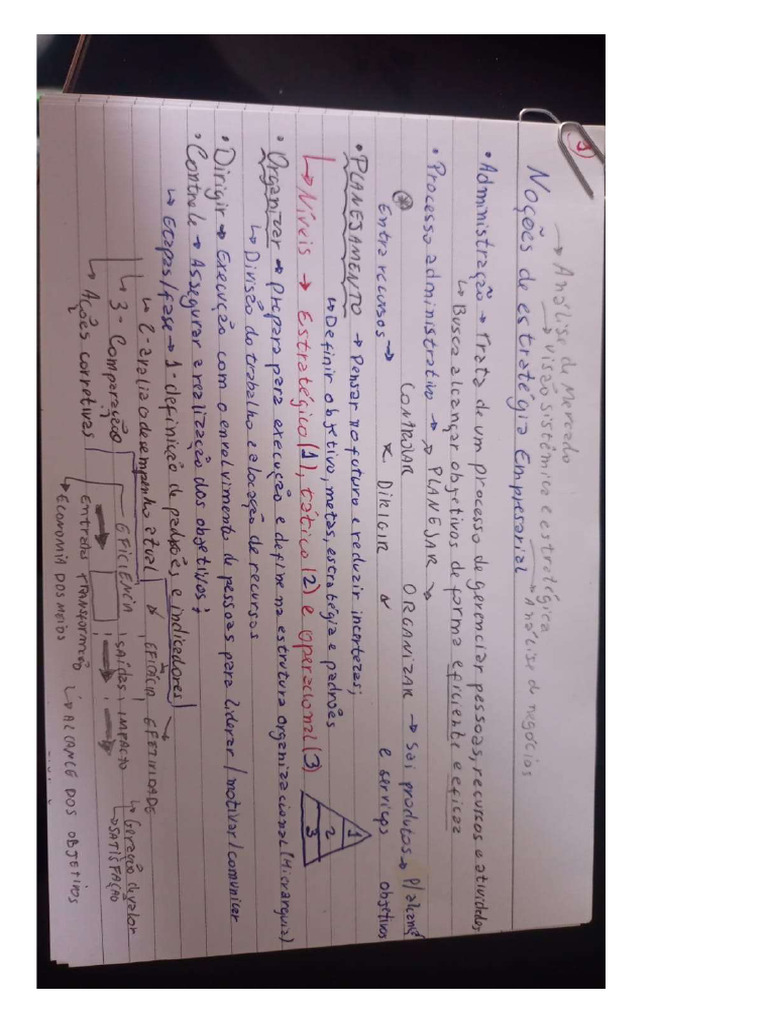 1
→ Análise de Mercado
→ visão sistêmica e estratégica
Noções de estratégia Empresarial → Análise d negócios
• Administração → Trata de um processo de gerenciar pessoas, recursos e atividades
↳ Busca alcançar objetivos de forma eficiente e eficaz
• Processo administrativo → PLANEJAR ↘
CONTROLAR ORGANIZAR → Sai produtos → P/alcanç
Entra recursos → ↖ DIRIGIR ↙ e serviços objetivos
• PLANEJAMENTO → Pensar no futuro e reduzir incertezas;
↳ Definir objetivo, metas, estratégia e padrões
↳ Níveis → Estratégico (1), tático (2) e operacional (3)
1
2
3
• Organizar → prepara para execução e define na estrutura organizacional (Hierarquia)
↳ Divisão do trabalho e alocação de recursos
• Dirigir → Execução com o envolvimento de pessoas para liderar/motivar/comunicar
• Controle → Assegurar a realização dos objetivos;
↳ Etapas/fase → 1 - definição de padrões e indicadores
↳ 2 - avalia o desempenho atual
↳ 3 - Comparação
↳ Ações corretivas
EFICIÊNCIA EFICÁCIA EFETIVIDADE
ENTRADAS TRANSFORMAÇÃO SAÍDAS IMPACTO
↳ Geração d valor
↳ SATISFAÇÃO
↳ ECONOMIA DOS MEIOS ↳ ALCANCE DOS OBJETIVOS